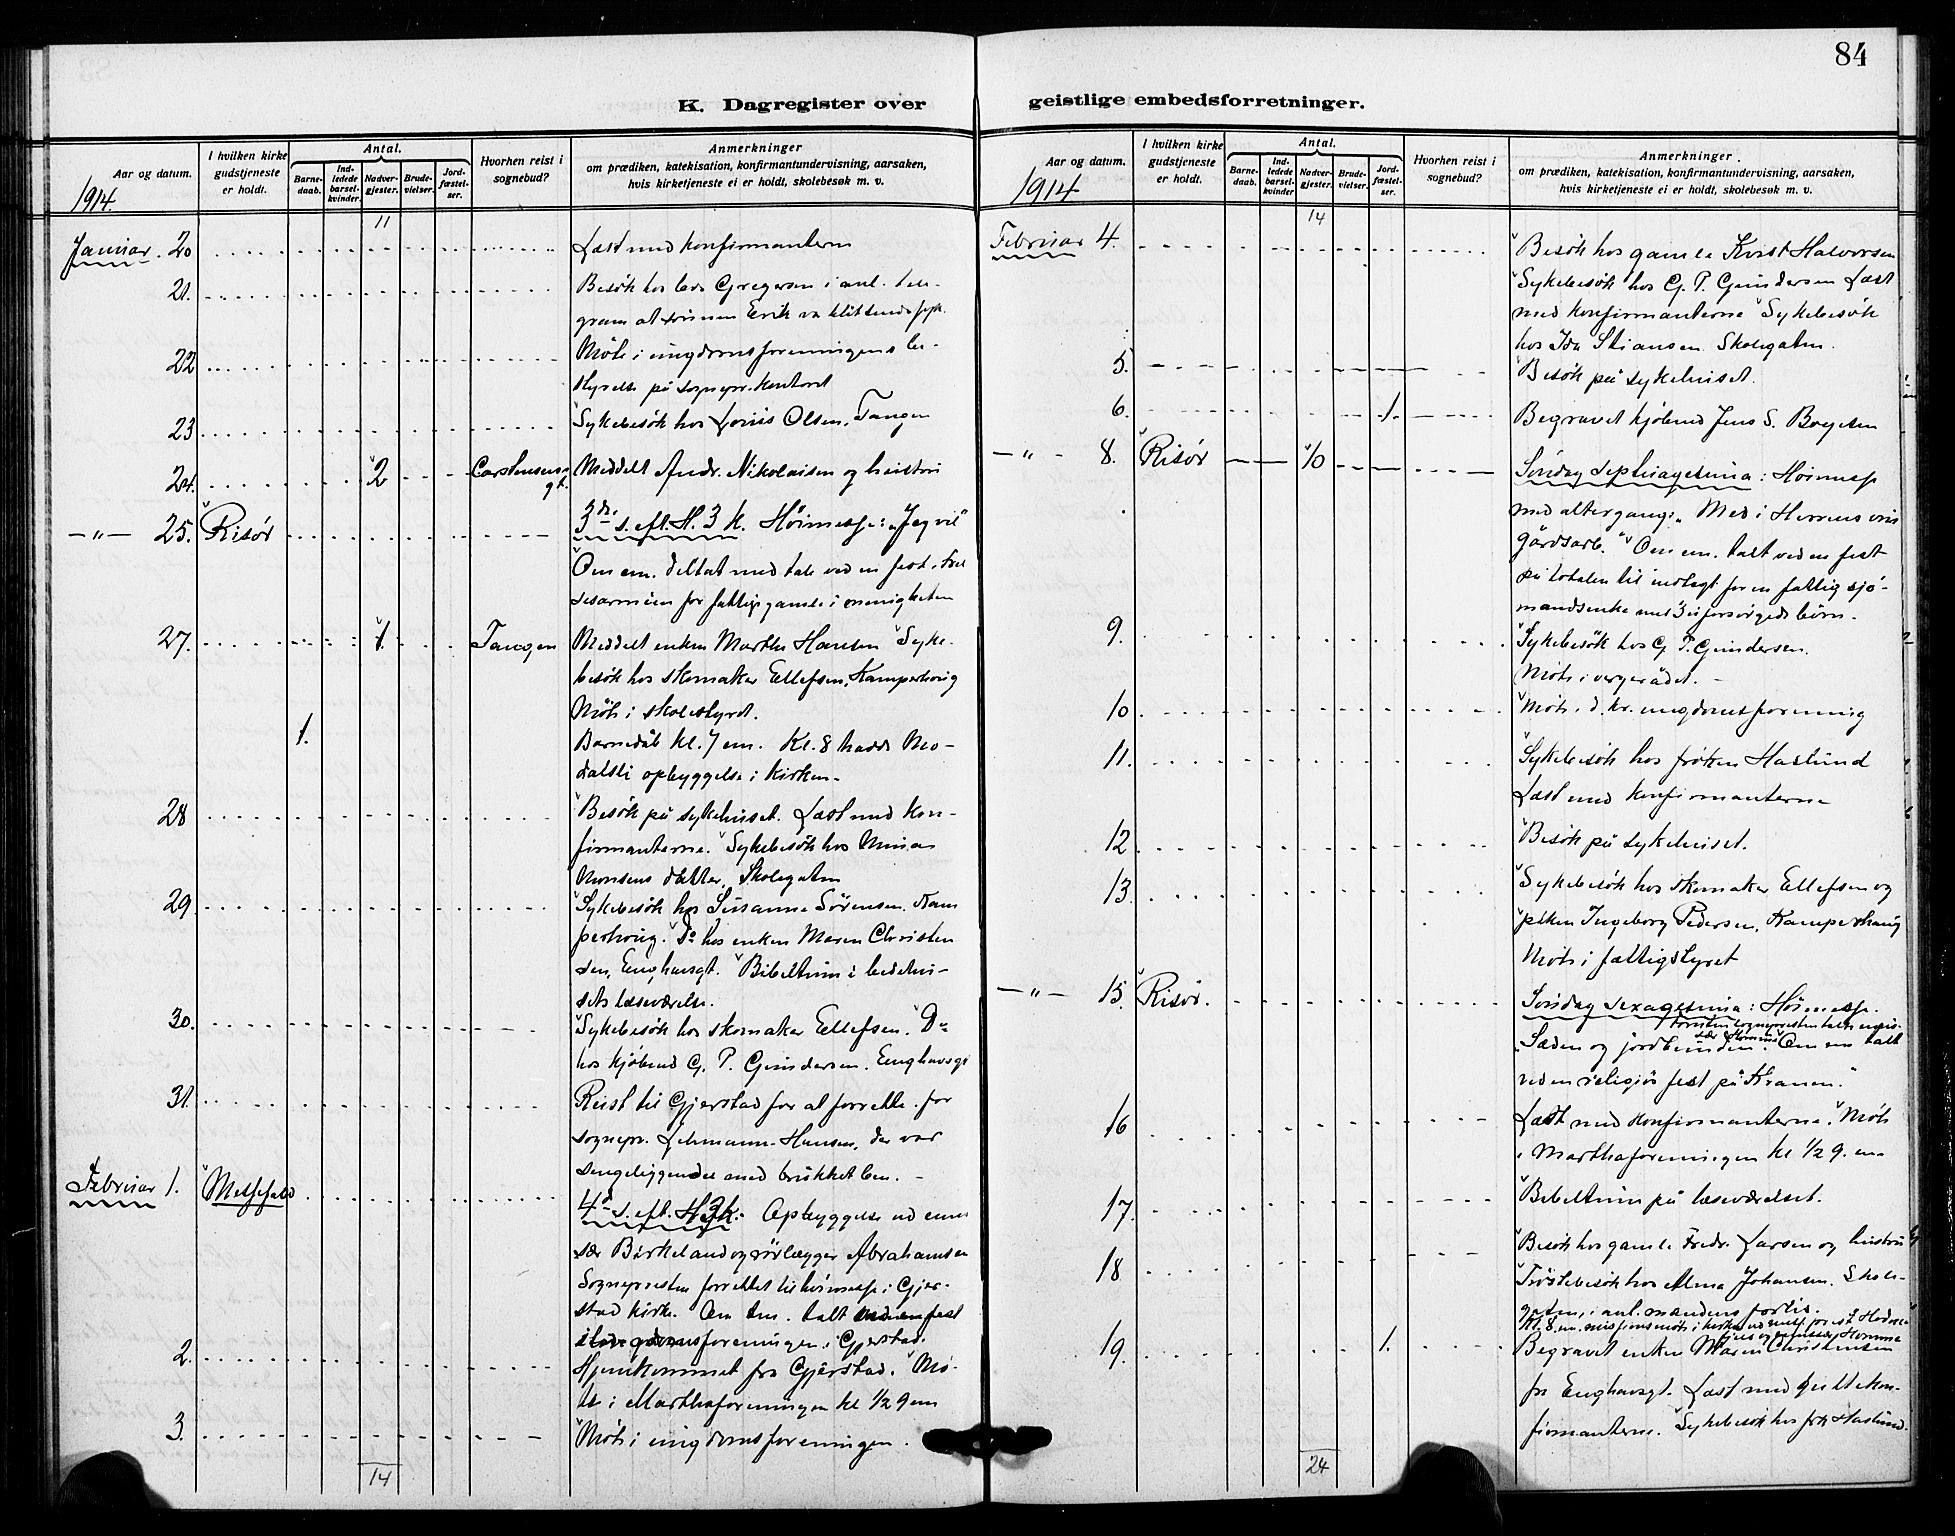 84
K. Dagregister over
geistlige embedsforretninger.
Aar og datum.
I hvilken kirke gudstjeneste er holdt.
Antal.
Barnedaab.
Indledede barselkvinder.
Nadvergjester.
Brudevielser.
Jordfæstelser.
Hvorhen reist i sognebud?
Anmerkninger
om prædiken, katekisation, konfirmantundervisning, aarsaken,
hvis kirketjeneste ei er holdt, skolebesøk m. v.
1914.
11
Januar. 20 Læst med konfirmanterne
21. Besök hos Gregersen i anl. tele-
gram at sönnen Erik
22 Möte i ungdomsforeningens be-
styrelse på sognepr. kontoret
23 Sykebesök hos Olsen, Tangen
24. 2 Carstensens gt. Meddelt Andr. Nikolaisen og hustru
25. Risör 3die s. eft. H. 3 K. Höimesse: "Jeg vil"
Om em. deltat med tale ved en fest i Frel
sesarmeen for fattige gamle i menigheten
27. 1 Tangen Meddelt enken Marthe Hansen Syke-
besök hos skomaker Ellefsen, Kamperhoug
Möte i skolestyret.
1. Barnedåb kl. 7 em. Kl. 8 hadde Mo-
dalsli opbyggelse i kirken.
28 Besök på sykehuset. Læst med kon-
firmanterne. Sykebesök hos Minia
Monsens datter, Skolegaten
29 Sykebesök hos Susanne Sörensen, Kam
perhoug. Do hos enken Maren Christen
sen, Enghavsgt. Bibeltime i bedehu-
sets læseværelse.
30. Sykebesök hos skomaker Ellefsen. Do
hos kjöbmd G. P. Gundersen. Enghavsgt
31. Reist til Gjerstad for at forrette for
sognepr. Lehmann-Hansen, der var
sengeliggende med brukket ben.
Februar 1. 4de s. eft. H3K. Opbyggelse ved emis
sær Birkeland og rörlægger Abrahamsen
Sognepresten forrettet til höimesse i Gjer-
stad kirke. Om em. talt ved en fest
ungdomsforeningen i Gjerstad.
2. Hjemkommet fra Gjerstad. Mö-
te i Marthaforeningen kl 1/2 9 em
3. Möte i ungdomsforeningen.
14
Aar og datum.
I hvilken kirke gudstjeneste er holdt.
Antal.
Barnedaab.
Indledede barselkvinder
Nadvergjester.
Brudevielser.
Jordfæstelser.
Hvorhen reist i sognebud?
Anmerkninger.
om prædiken, katekisation, konfirmantundervisning, aarsaken,
hvis kirketjeneste ei er holdt, skolebesøk m. v.
1914
14
Februar 4. Besök hos gamle Halvorsen
Sykebesök hos G. P. Gundersen Læst
med konfirmanterne Sykebesök
hos Ida Stiansen Skolegaten.
5. Besök på sykehuset.
6. 1. Begravet kjöbmd Jens S. Boyesen
8. Risör 10 Söndag septuagesima: Höimesse
med altergang: "Med i Herrens vin
gårdsarb." Om em. talt ved en fest
på totalen til indtægt for en fattig sjö-
mandsenke med 3 uforsörgede börn.
9. Sykebesök hos G P. Gundersen.
Möte i vergerådet.
10 Möte i d. kr. ungdomsforening
11. Sykebesök hos fröken Haslund
Læst med konfirmanterne
12 Besök på sykehuset.
13. Sykebesök hos skomaker Ellefsen og
piken Ingeborg Pedersen, Kamperhaug
Möte i fattigstyret
15. Risör. Söndag sexagesima: Höimesse.
"Sæden og jordbunden." Om em talt
ved en religiös fest på "Kranen."
16 Læst med konfirmanterne. Möte
i Marthaforeningen kl 1/2 9. em
17. Bibeltime på læseværelset.
18 Besök hos gamle Fredr. Larsen og hustru
Tröstebesök hos Alma Johansen. Skole-
gaten, i anl. mandens forlis.
19. 1. Begravet enken Maren Christensen
fra Enghavsgt. Læst med guttekon-
firmanterne. Sykebesök hos frk Haslund.
24